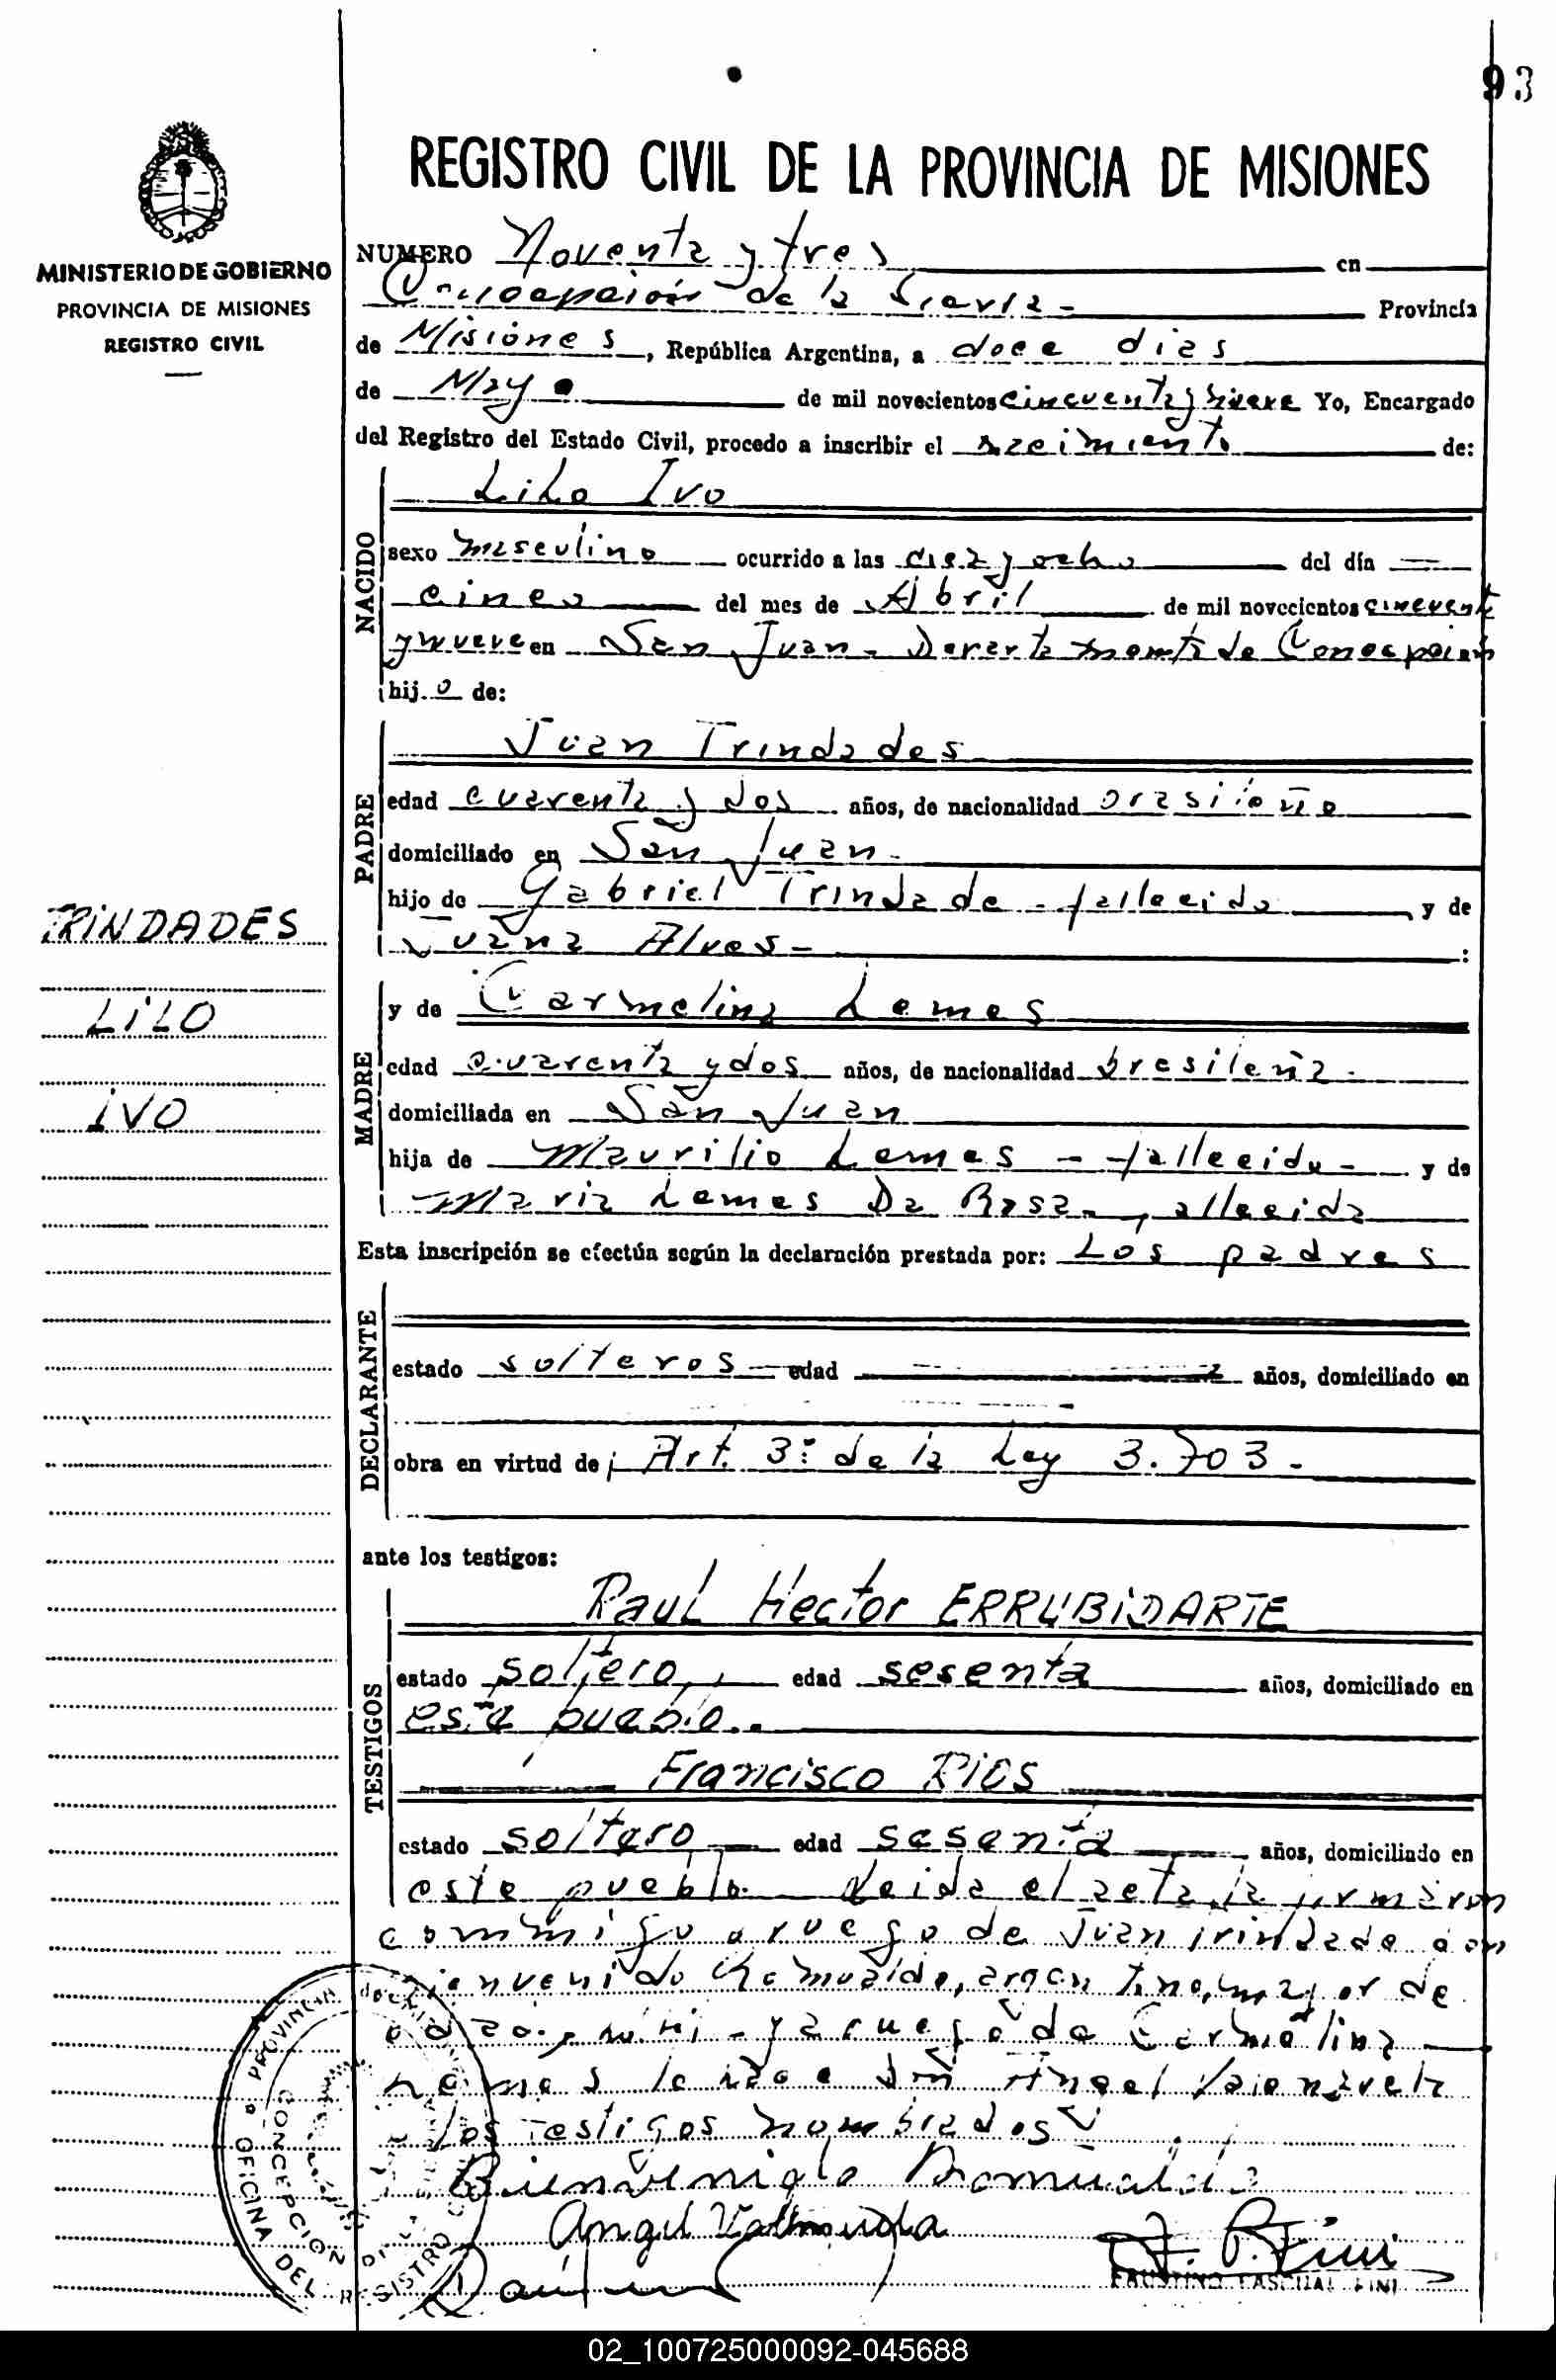 93
REGISTRO CIVIL DE LA PROVINCIA DE MISIONES
MINISTERIO DE GOBIERNO
PROVINCIA DE MISIONES
REGISTRO CIVIL
TRINDADES
LILO
IVO
NUMERO Noventa y tres en
Concepción de la Sierra - Provincia
de Misiones, República Argentina, a doce dias
de Mayo de mil novecientos cincuenta y nueve Yo, Encargado
del Registro del Estado Civil, procedo a inscribir el nacimiento de:
NACIDO
Lilo Ivo
sexo masculino ocurrido a las diez y ocho del día
cinco del mes de Abril de mil novecientos cincuenta
y nueve en San Juan - Departamento de Concepción
hijo de:
PADRE
Juan Trindades
edad cuarenta y dos años, de nacionalidad brasileño
domiciliado en San Juan -
hijo de Gabriel Trindade - fallecido y de
Juana Alves - :
MADRE
y de Carmelina Lemes
edad cuarenta y dos años, de nacionalidad brasileña -
domiciliada en San Juan
hija de Maurilio Lemes - fallecido - y de
Maria Lemes Da Rosa - fallecida
Esta inscripción se efectúa según la declaración prestada por: Los padres
DECLARANTE
estado solteros edad años, domiciliado en
obra en virtud de Art. 3º de la Ley 3.703 -
ante los testigos:
TESTIGOS
Raul Hector ERRUBIDARTE
estado soltero, edad sesenta años, domiciliado en
este pueblo.
Francisco RIOS
estado soltero edad sesenta años, domiciliado en
este pueblo - Leida el acta, la firmaron
conmigo a ruego de Juan Trindade don
Bienvenido Romualdo, argentino, mayor de
edad y a ruego de Carmelina
Lemes lo hace don Angel
los testigos nombrados
Bienvenido Romualdo
Angel
F. P. Fini
FAUSTINO PASCUAL FINI
PROVINCIA DE MISIONES
OFICINA DEL REGISTRO CIVIL
CONCEPCION DE LA SIERRA
02_100725000092-045688